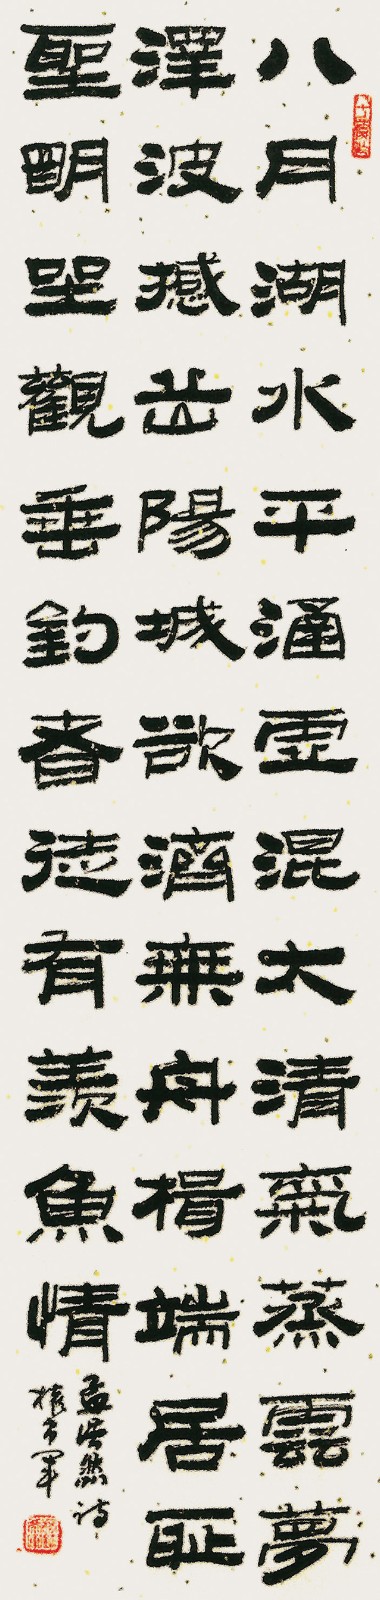 八月湖水平涵虛混太清氣蒸雲夢
澤波撼岳陽城欲濟無舟楫端居耻
聖明坐觀垂釣者徒有羨魚情
孟浩然詩